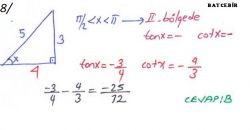 BATCEBİR
8/
π/2 < x < π → II. bölgede
tanx = - cotx = -
5
3
x
4
tanx = -3/4 cotx = -4/3
-3/4 - 4/3 = -25/12
CEVAP: B